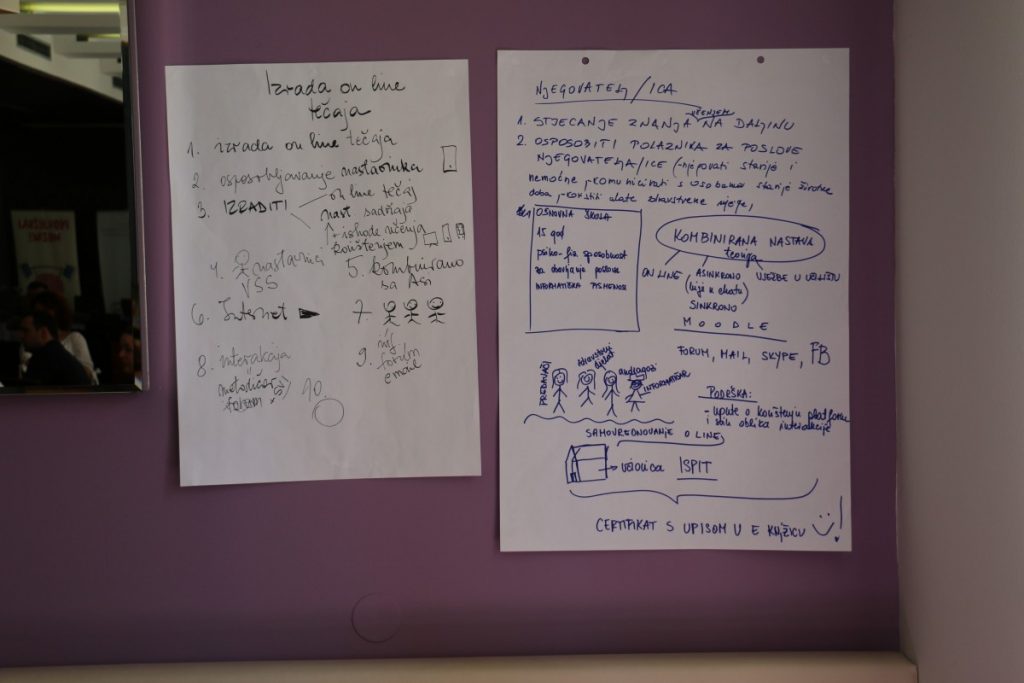 Izrada on line
tečaja
1. izrada on line tečaja
2. osposobljavanje nastavnika
3. IZRADITI
on line tečaj
nast. sadržaja
+ ishode učenja
korištenjem
4. nastavnici
VSS
5. kombinirano
sa
6. Internet
7.
8. interakcija
forum
9.
forum
email
10.
NJEGOVATELJ/ICA
1. STJECANJE ZNANJA UČENJEM NA DALJINU
2. OSPOSOBITI POLAZNIKA ZA POSLOVE
NJEGOVATELJA/ICE (-njegovati starije i
nemoćne, -komunicirati s osobama starije životne
dobi, -koristiti alate zdravstvene njege,
OSNOVNA ŠKOLA
15 god
psiho-fiz sposobnost
za obavljanje poslova
INFORMATIČKA PISMENOST
KOMBINIRANA NASTAVA
teorija
ON LINE
ASINKRONO
VJEŽBE U UČILIŠTU
SINKRONO
MOODLE
FORUM, MAIL, SKYPE, FB
PREDAVAČI
zdravstveni djelat
andragog
INFORMATIČAR
PODRŠKA:
- upute o korištenju platforme
i svim oblika interakcije
SAMOVREDNOVANJE O LINE
učionica ISPIT
CERTIFIKAT S UPISOM U E KNJIŽICU !